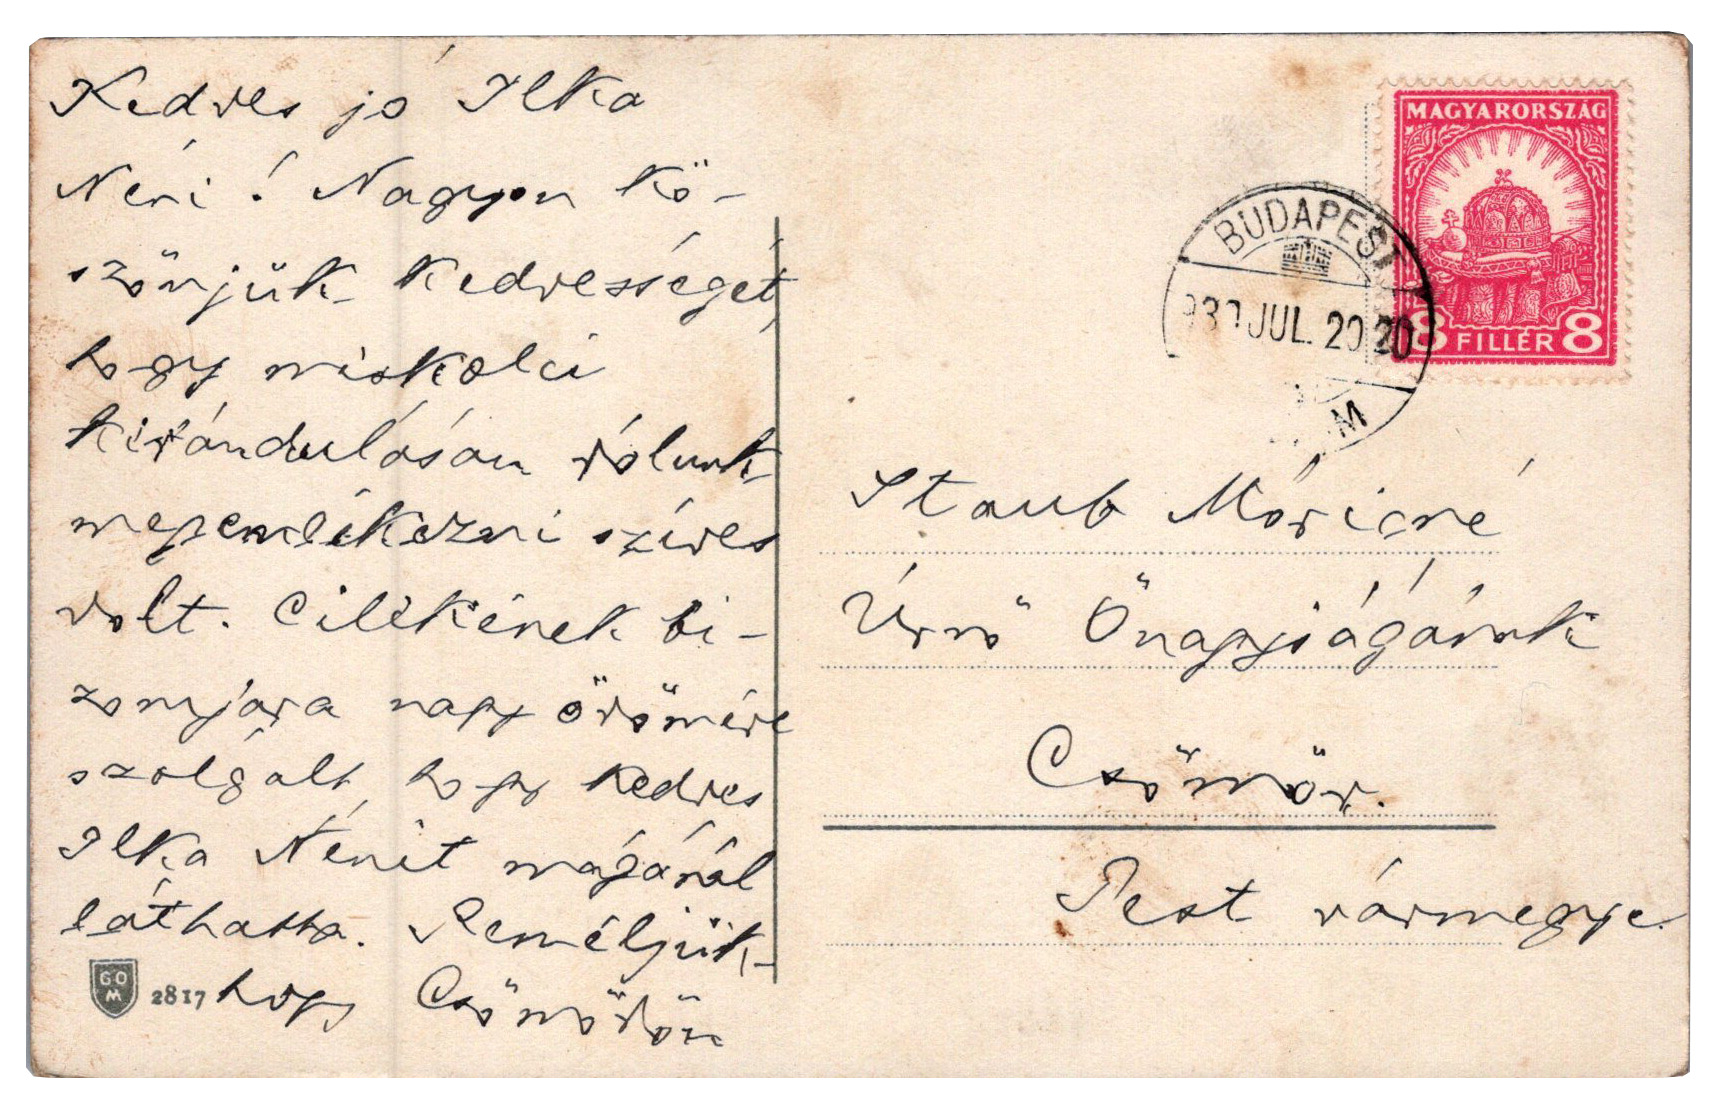 Kedves jó Ilka
Néni! Nagyon kö-
szönjük kedvességét,
hogy miskolci
kirándulásán rólunk
megemlékezni szíves
volt. Cilikének bi-
zonyára nagy örömére
szolgált, hogy kedves
Ilka Nénit magánál
láthatta. Reméljük
hogy Csömörön
GO
M
2817
MAGYARORSZÁG
8 FILLÉR 8
BUDAPEST
930 JUL. 20 20
M
Staub Móricné
Úrnő Önagyságának
Csömör.
Pest vármegye.